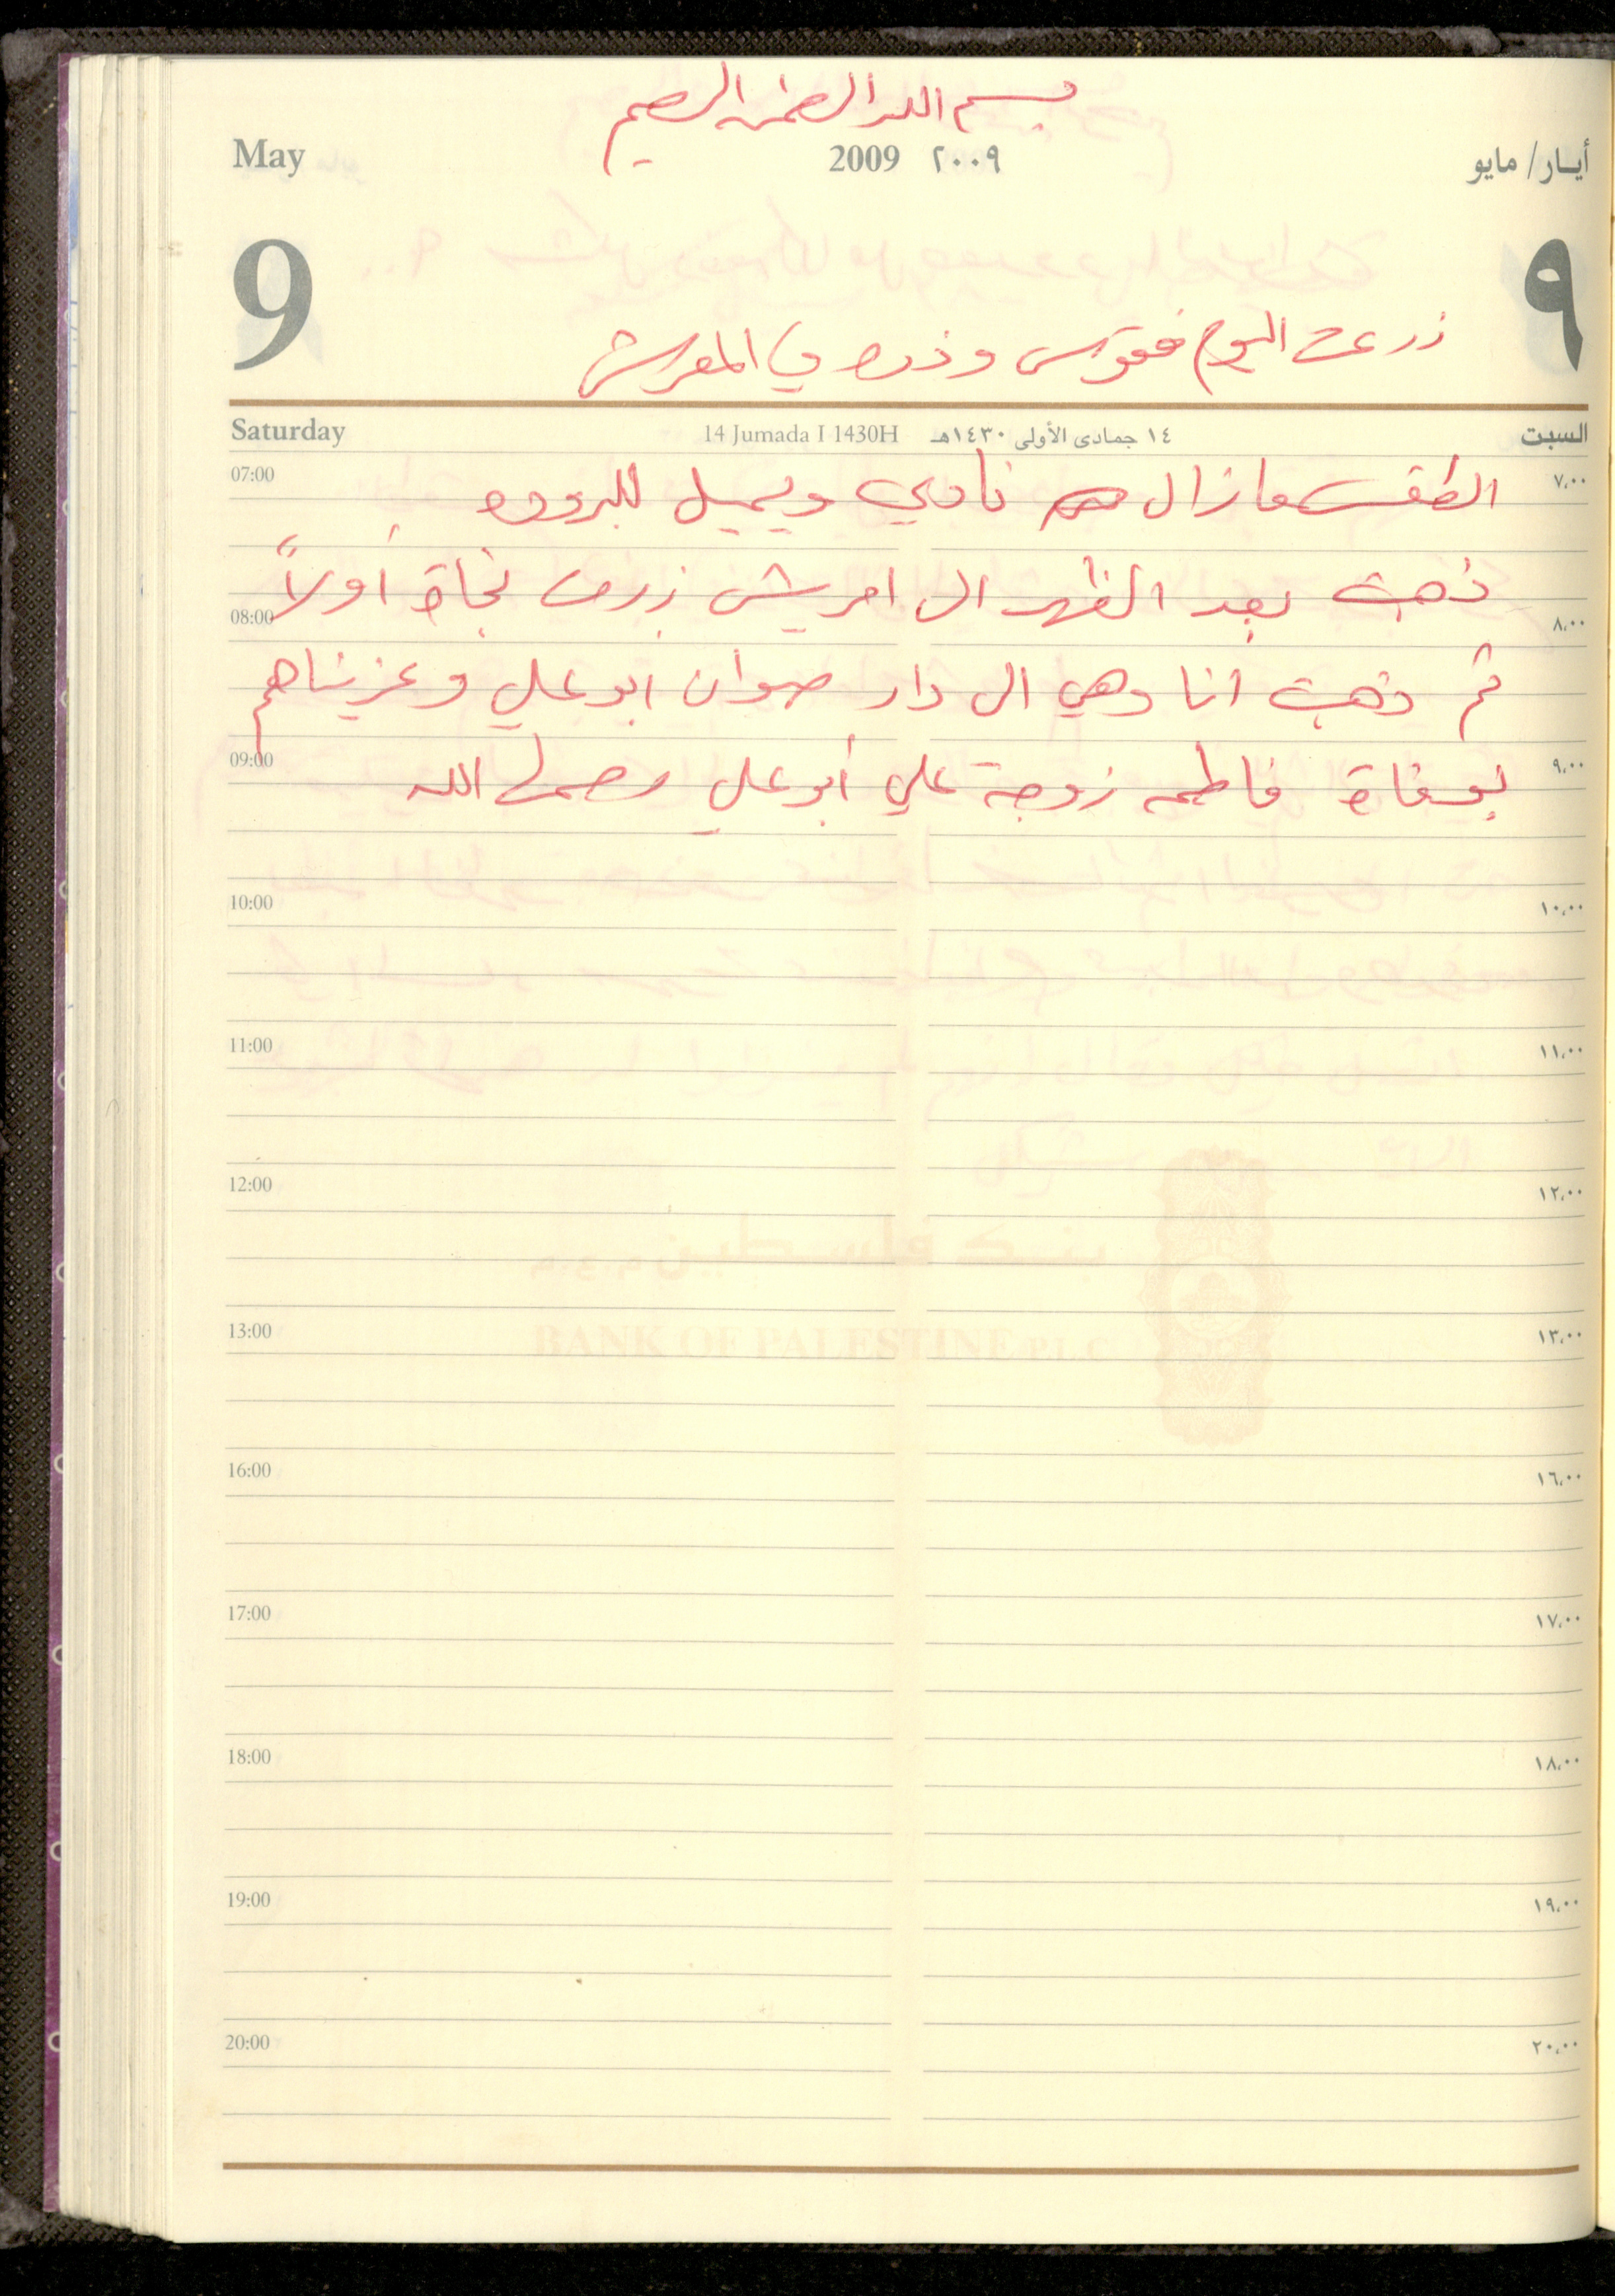 بسم الله الرحمن الرحيم
May 2009 ٢٠٠٩ أيـار/ مايو
9 ٩
زرعت اليوم فقوس وذره في المعرش
Saturday 14 Jumada I 1430H ١٤ جمادى الأولى ١٤٣٠هـ السبت
07:00 ٧,٠٠
الطقس مازال نادي ويميل للبروده
ذهبت بعد الظهر الى امريش زرت نجاة أولاً
08:00 ٨,٠٠
ثم ذهبت أنا وهي الى دار صوان ابو علي وعزيناهم
09:00 ٩,٠٠
بوفاة فاطمه زوجة علي أبو علي رحمها الله
10:00 ١٠,٠٠
11:00 ١١,٠٠
12:00 ١٢,٠٠
13:00 ١٣,٠٠
16:00 ١٦,٠٠
17:00 ١٧,٠٠
18:00 ١٨,٠٠
19:00 ١٩,٠٠
20:00 ٢٠,٠٠